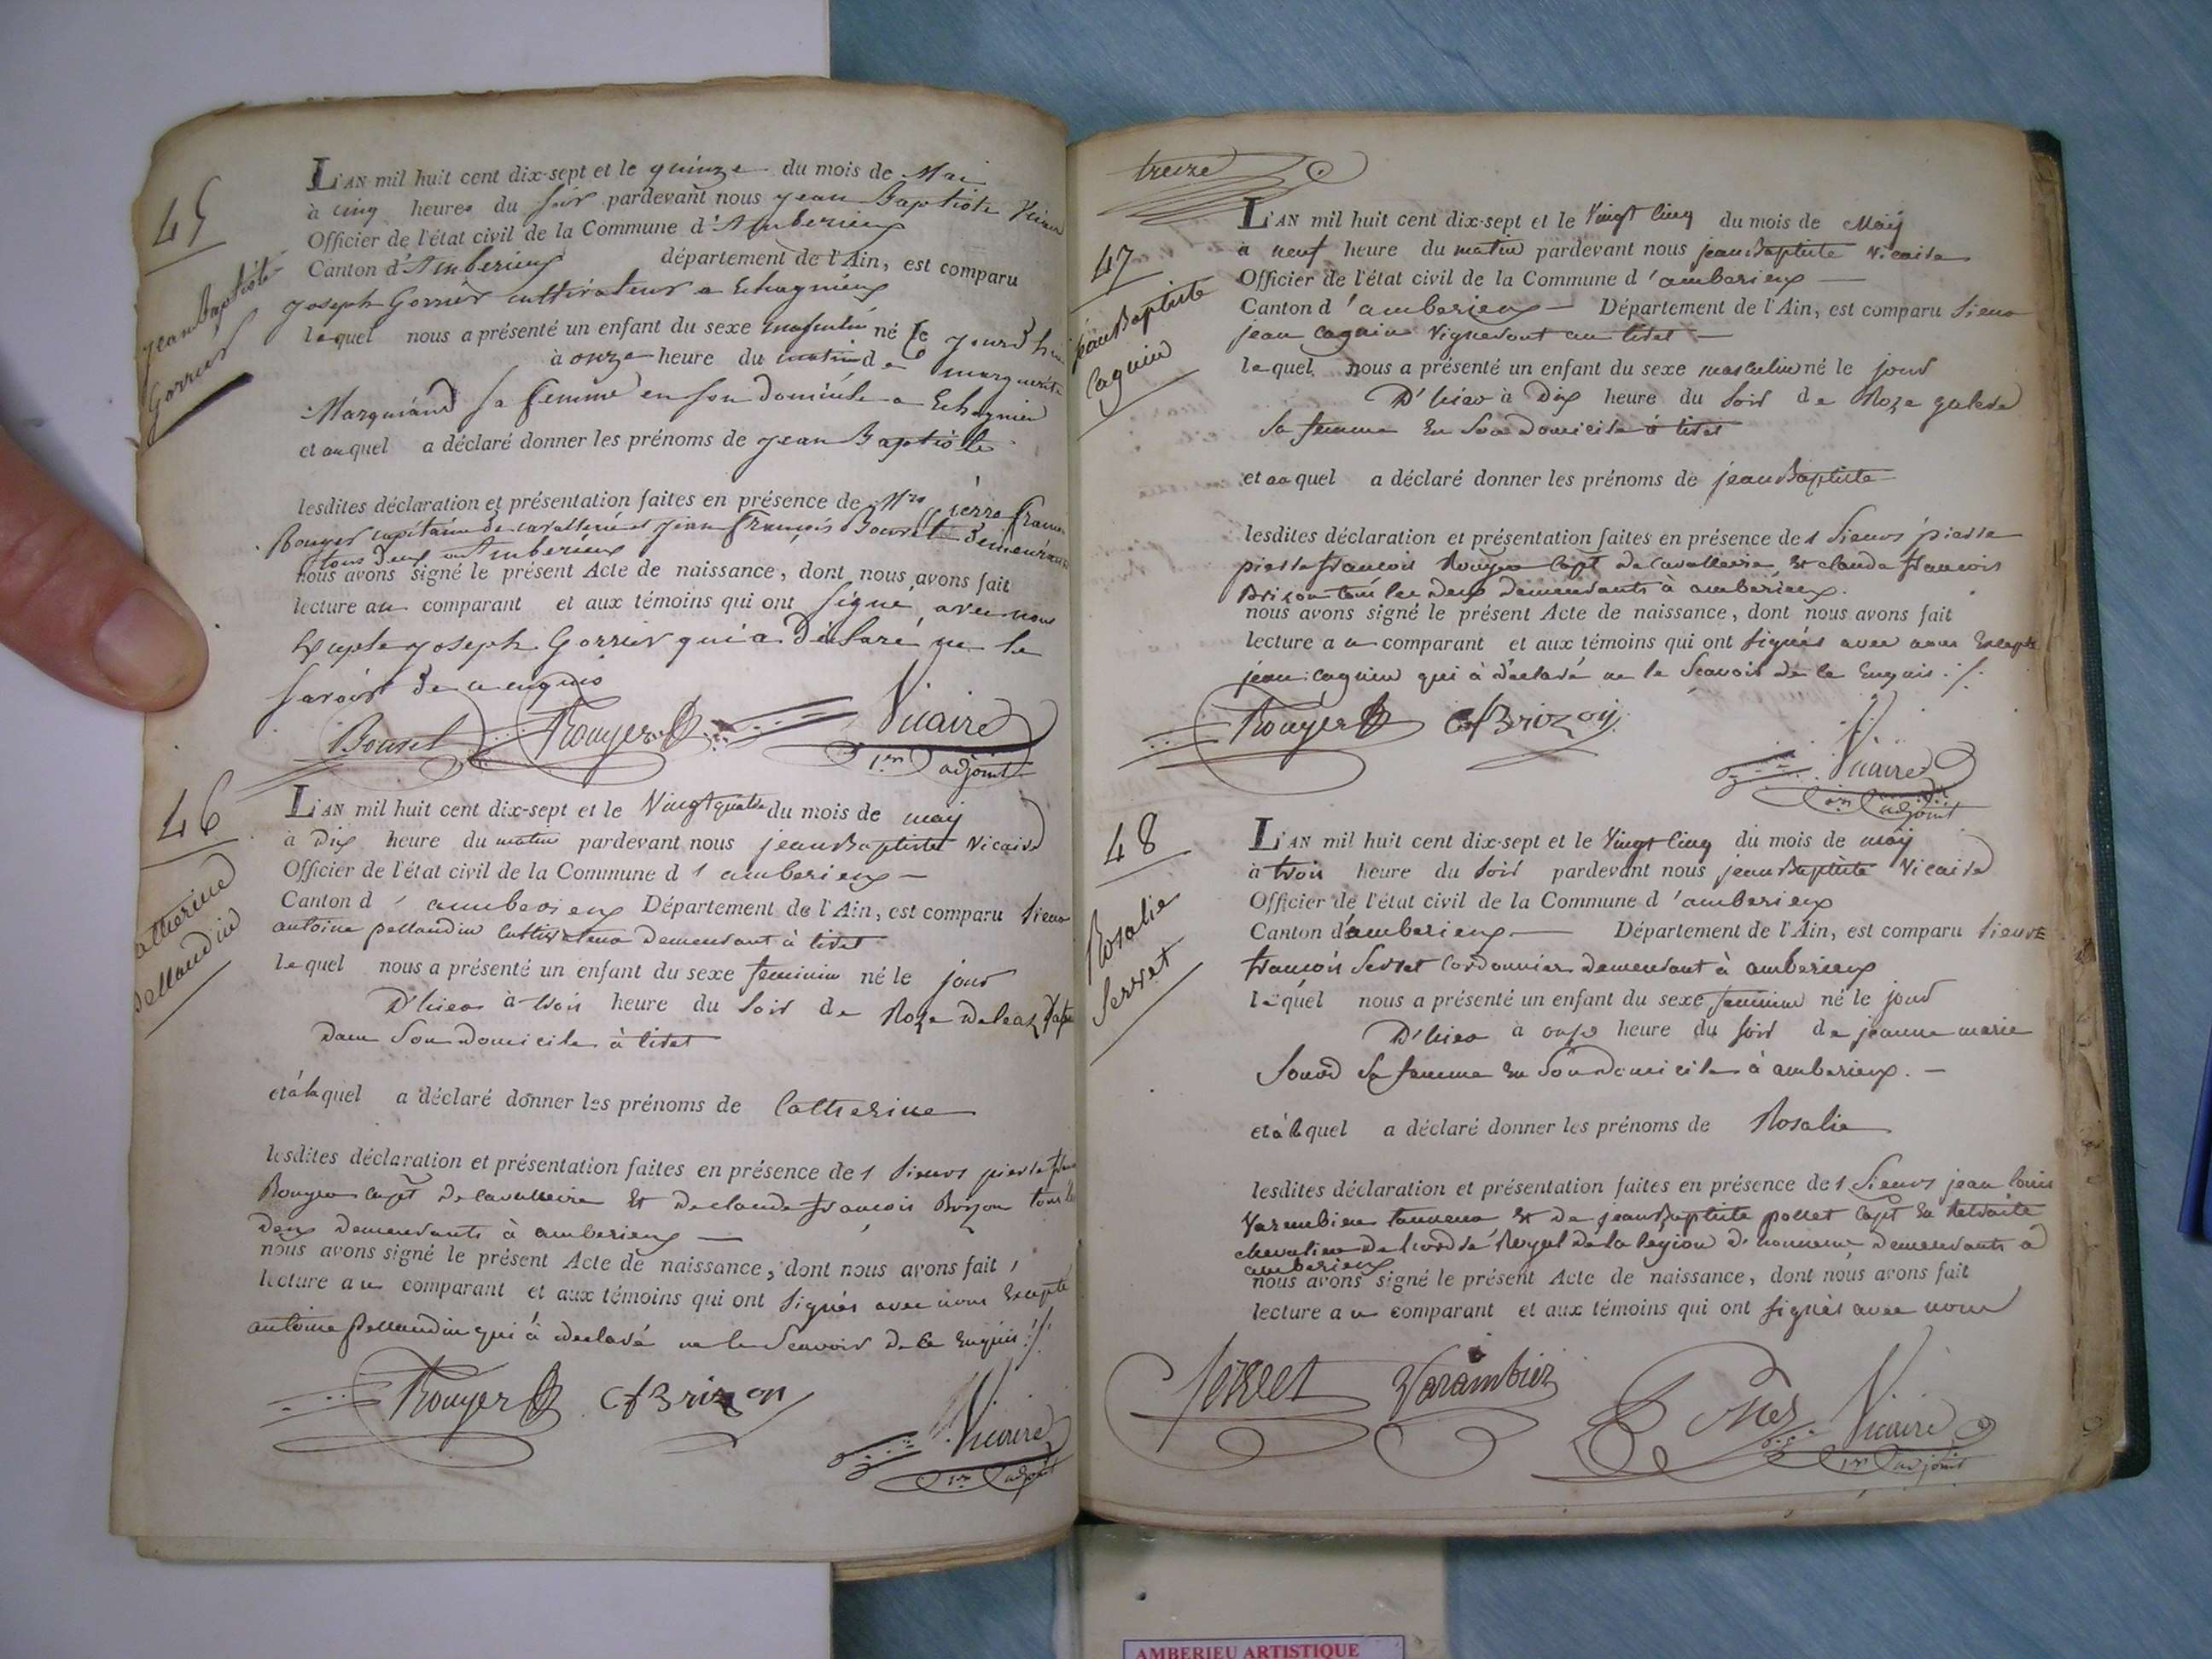 45
Jean Baptiste
Gorrier
L'AN mil huit cent dix-sept et le quinze du mois de Mai
à cinq heures du soir pardevant nous jean Baptiste Vicaire
Officier de l'état civil de la Commune d'Amberieux
Canton d'Amberieux département de l'Ain, est comparu
joseph Gorrier cultivateur a
lequel nous a présenté un enfant du sexe masculin né le jourd'hui
à onze heure du matin de marguerite
sa femme en son domicile a
et auquel a déclaré donner les prénoms de jean Baptiste
lesdites déclaration et présentation faites en présence de Mrs pierre
Rouyer capitaine de cavallerie et jean françois Bouvet demeurants
tous deux a Amberieux
nous avons signé le présent Acte de naissance, dont nous avons fait
lecture au comparant et aux témoins qui ont signé avec nous
Excepte joseph Gorrier qui a déclaré ne le
savoir de ce enquis
Rouyer Vicaire
1er adjoint
46
Catherine
pellaudin
L'AN mil huit cent dix-sept et le Vingt quatre du mois de may
à dix heure du matin pardevant nous jean Baptiste Vicaire
Officier de l'état civil de la Commune d'amberieux
Canton d'amberieux Département de l'Ain, est comparu Sieur
antoine pellaudin cultivateur demeurant à tiret
lequel nous a présenté un enfant du sexe feminin né le jour
D'hier à trois heure du soir de Roze
dans son domicile à tiret
et à laquel a déclaré donner les prénoms de Catherine
lesdites déclaration et présentation faites en présence de Sieurs pierre
Rouyer capt de cavallerie Et de claude françois Brizon tous les
deux demeurants à amberieux
nous avons signé le présent Acte de naissance, dont nous avons fait
lecture au comparant et aux témoins qui ont signés avec nous Excepté
antoine pellaudin qui à déclaré ne le Scavoir de ce Enquis
Rouyer CfBrizon
Vicaire
1er adjoint
treize
47
jean Baptiste
Cagnin
L'AN mil huit cent dix-sept et le Vingt Cinq du mois de May
à neuf heure du matin pardevant nous jean Baptiste Vicaire
Officier de l'état civil de la Commune d'amberieux
Canton d'amberieux Département de l'Ain, est comparu Sieur
jean Cagnin Vigneront au tiret
lequel nous a présenté un enfant du sexe masculin né le jour
D'hier à Dix heure du Soir de Roze
Sa femme En Son Domicile à tiret
et auquel a déclaré donner les prénoms de jean Baptiste
lesdites déclaration et présentation faites en présence des Sieurs pierre
pierre françois Rouyer Capt de Cavallerie Et claude francois
Brizon tous les deux demeurants à amberieux.
nous avons signé le présent Acte de naissance, dont nous avons fait
lecture au comparant et aux témoins qui ont signés avec nous Excepté
jean Cagnin qui à déclaré ne le Scavoir de ce Enquis
Rouyer CfBrizon
Vicaire
1er adjoint
48
Rosalie
Serret
L'AN mil huit cent dix-sept et le Vingt Cinq du mois de may
à trois heure du Soir pardevant nous jean Baptiste Vicaire
Officier de l'état civil de la Commune d'amberieux
Canton d'amberieux Département de l'Ain, est comparu Sieur
francois Serret Cordonnier demeurant à amberieux
lequel nous a présenté un enfant du sexe feminin né le jour
D'hier à onze heure du soir de jeanne marie
Sa femme En Son Domicile à amberieux.
et à laquel a déclaré donner les prénoms de Rosalie
lesdites déclaration et présentation faites en présence des Sieurs jean louis
Varembier tanneur Et de jean Baptiste pollet Capt En Retraite
chevalier de l'ordre Royal de la légion d'honneur demeurants à
amberieux
nous avons signé le présent Acte de naissance, dont nous avons fait
lecture au comparant et aux témoins qui ont signés avec nous
Serret Varambier Vicaire
1er adjoint
AMBERIEU ARTISTIQUE